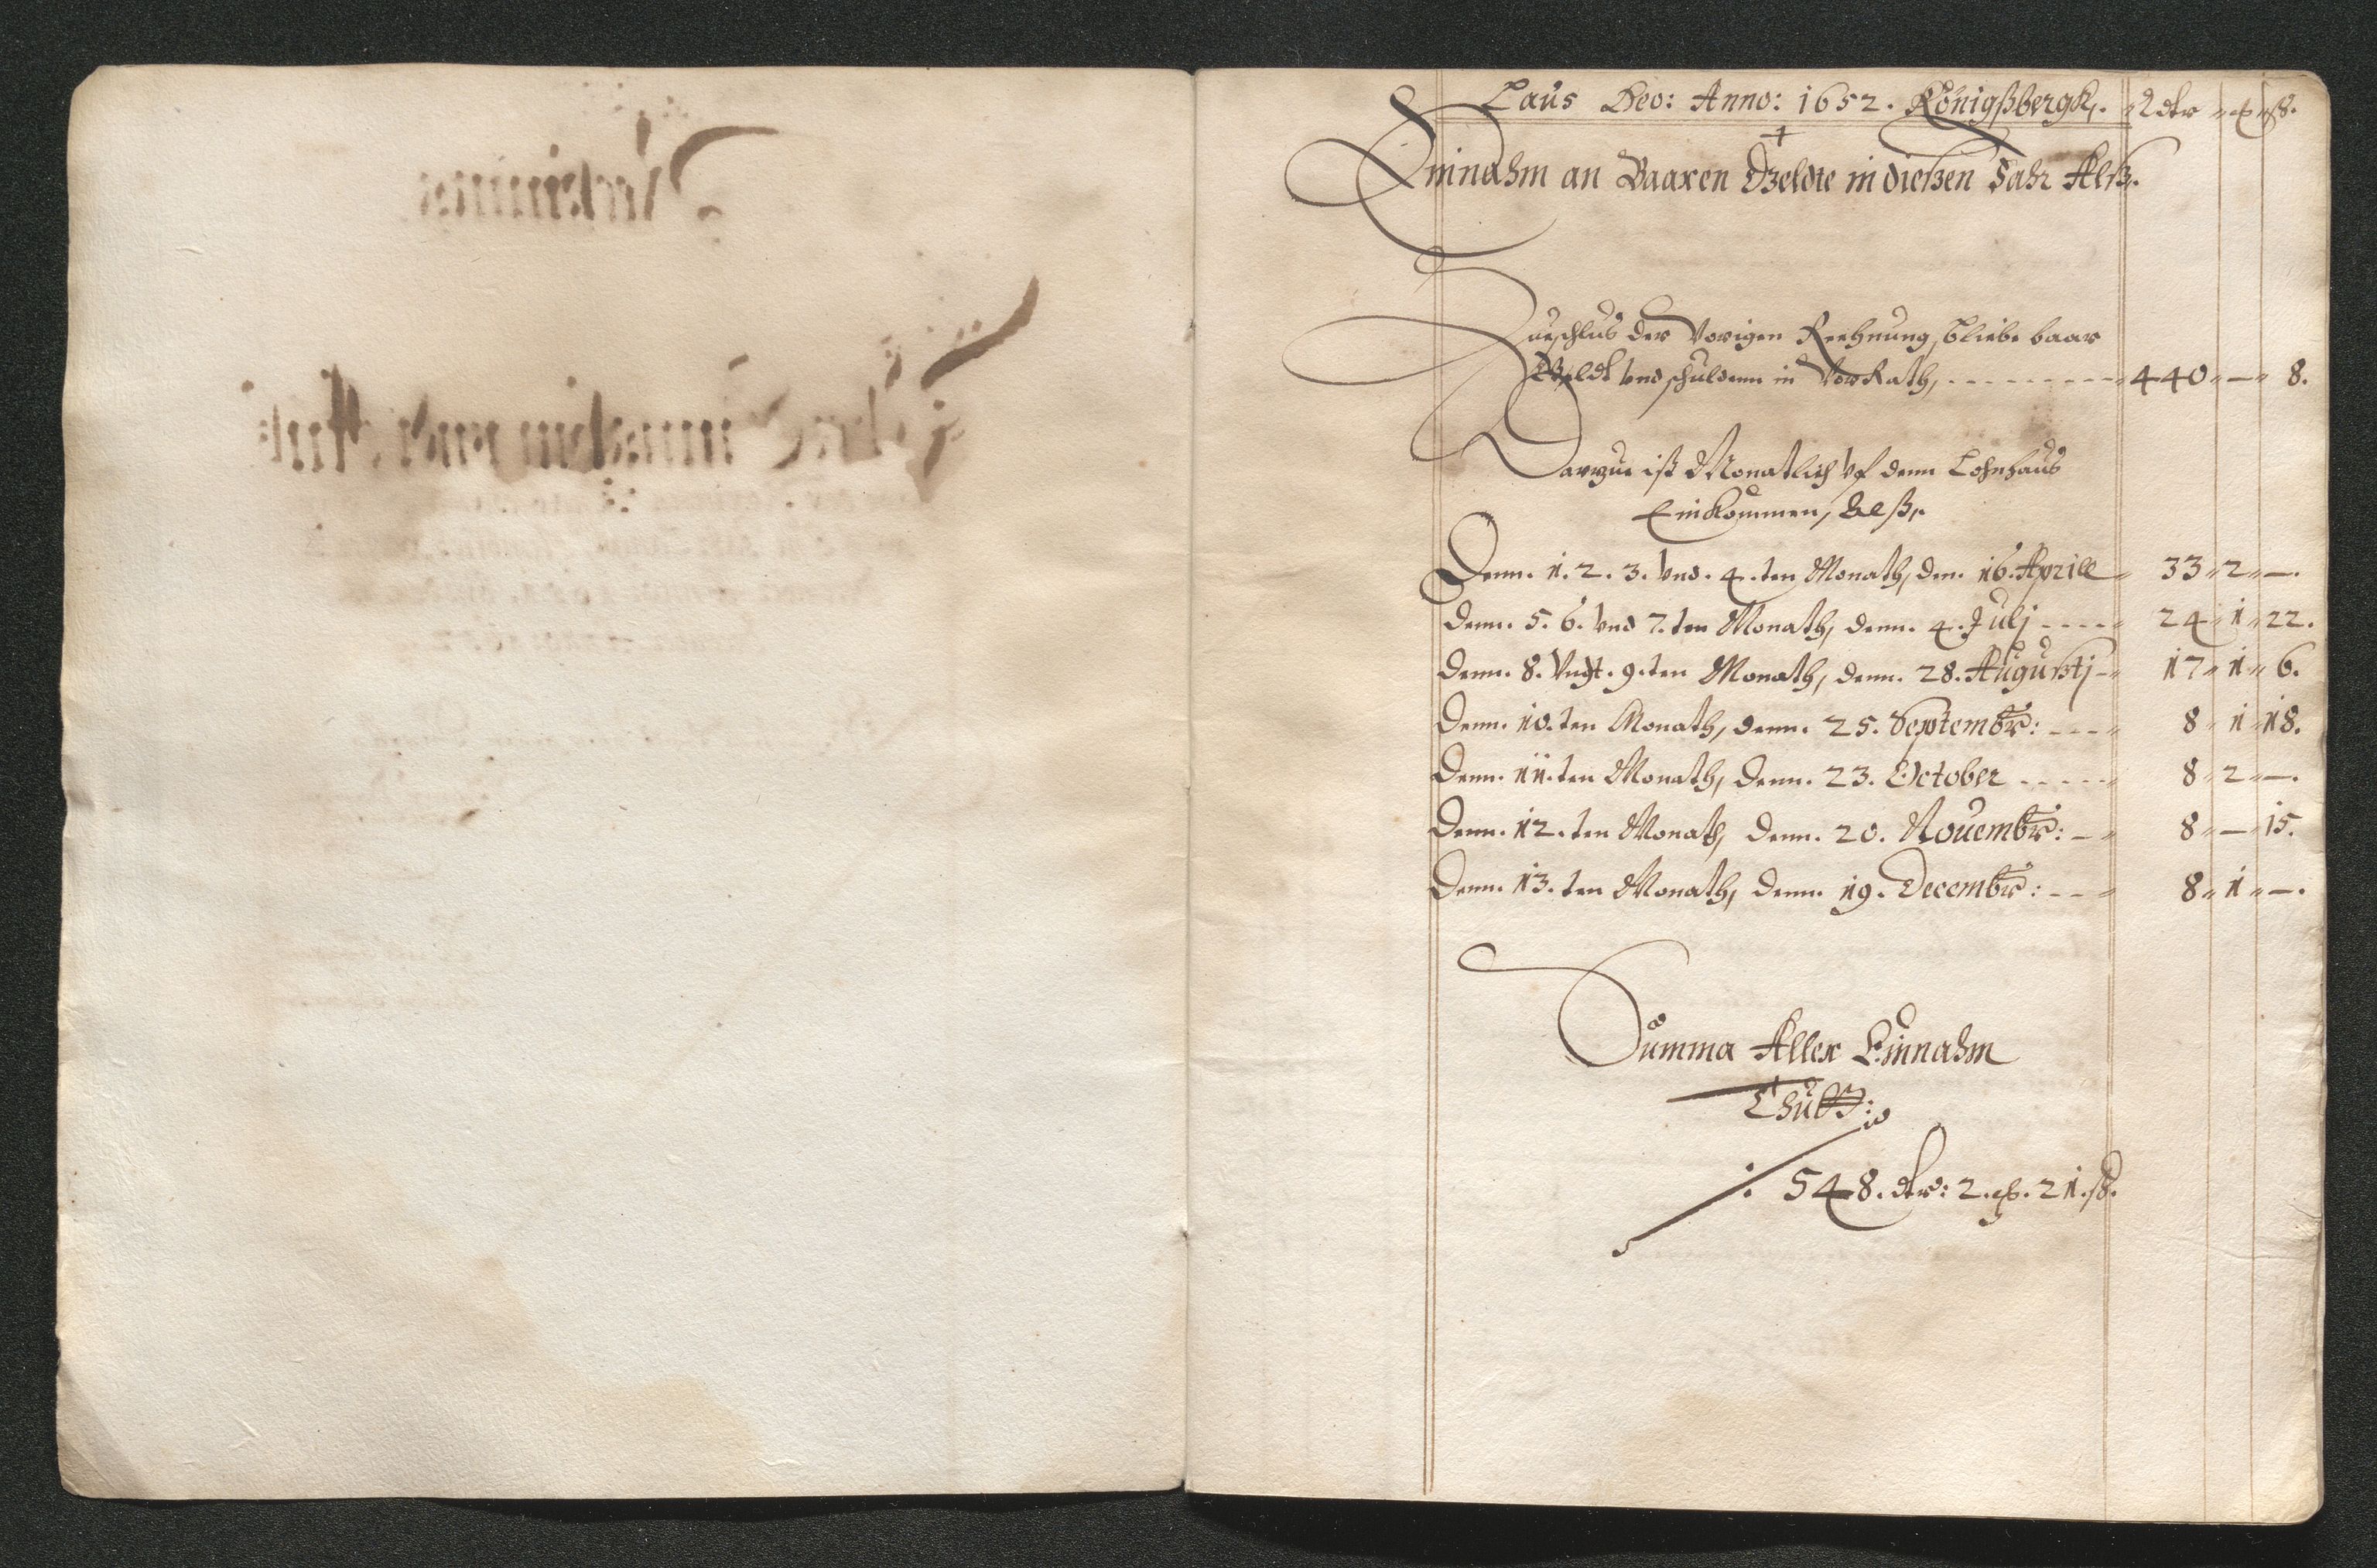 Laus Deo: Anno: 1652. Königßbergk. Rdlr
Einnahm an Baaren Geldte in dießen Jahr Alß.
Zueschlus der Vorigen Rechnung, bliebe baar
Geldt vnd schulden in VorRath, 440 — 8.
Darzue ist Monatlich vf denn Lohnhaus
Einkommen, Alß,
Denn. 1. 2. 3. vnd. 4.ten Monath, den. 16. Aprill 33 2 —.
Denn. 5. 6. vnd 7.ten Monath, denn. 4. Julj 24 1 22.
Denn. 8. Vndt. 9.ten Monath, denn. 28. Augustj 17 1 6.
Denn. 10.ten Monath, denn. 25. Septembr: 8 1 18.
Denn. 11.ten Monath, denn. 23. October 8 2 —.
Denn. 12.ten Monath, denn. 20. Nouembr: 8 — 15.
Denn. 13.ten Monath, denn. 19. Decembr: 8 1 —.
Summa Aller Einnahm
Thutt:
548. dlr: 2. 21. ß.